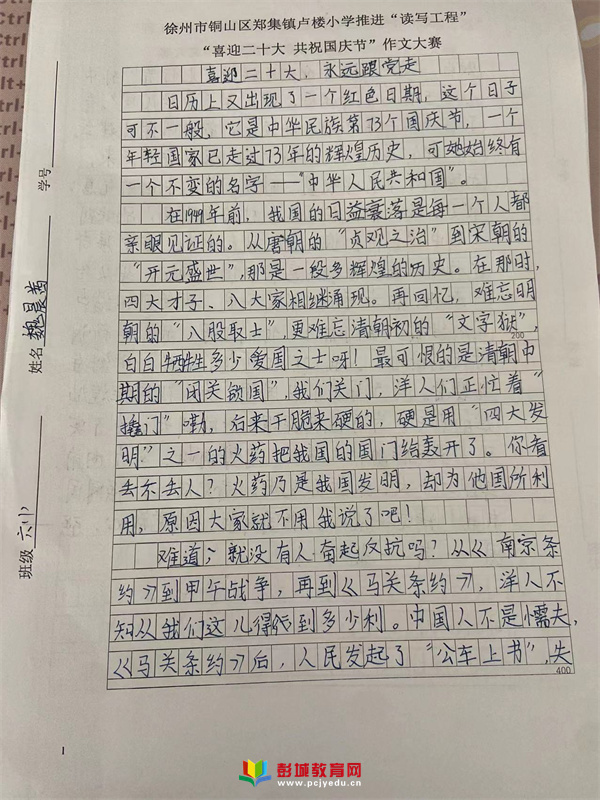 徐州市铜山区郑集镇卢楼小学推进“读写工程”
“喜迎二十大 共祝国庆节”作文大赛
喜迎二十大，永远跟党走
日历上又出现了一个红色日期，这个日子
可不一般，它是中华民族第73个国庆节，一个
年轻国家已走过73年的辉煌历史，可她始终有
一个不变的名字——“中华人民共和国”。
在1949年前，我国的日益衰落是每一个人都
亲眼见证的。从唐朝的“贞观之治”到宋朝的
“开元盛世”，那是一段多辉煌的历史。在那时，
四大才子、八大家相继涌现。再回忆，难忘明
朝的“八股取士”，更难忘清朝初的“文字狱”，
200
白白牺牲多少爱国之士呀！最可恨的是清朝中
期的“闭关锁国”，我们关门，洋人们正忙着“
撞门”嘞，后来干脆来硬的，硬是用“四大发
明”之一的火药把我国的国门给轰开了。你看
丢不丢人？火药乃是我国发明，却为他国所利
用，原因大家就不用我说了吧！
难道；就没有人奋起反抗吗？从《南京条
约》到甲午战争，再到《马关条约》，洋人不
知从我们这儿得到多少利。中国人不是懦夫，
《马关条约》后，人民发起了“公车上书”，失
400
学号
姓名 魏晨茜
班级 六(1)
1
彭城教育网
www.pcjyedu.cn
Ctrl+
Ctrl+
Ctrl+
Ctrl+